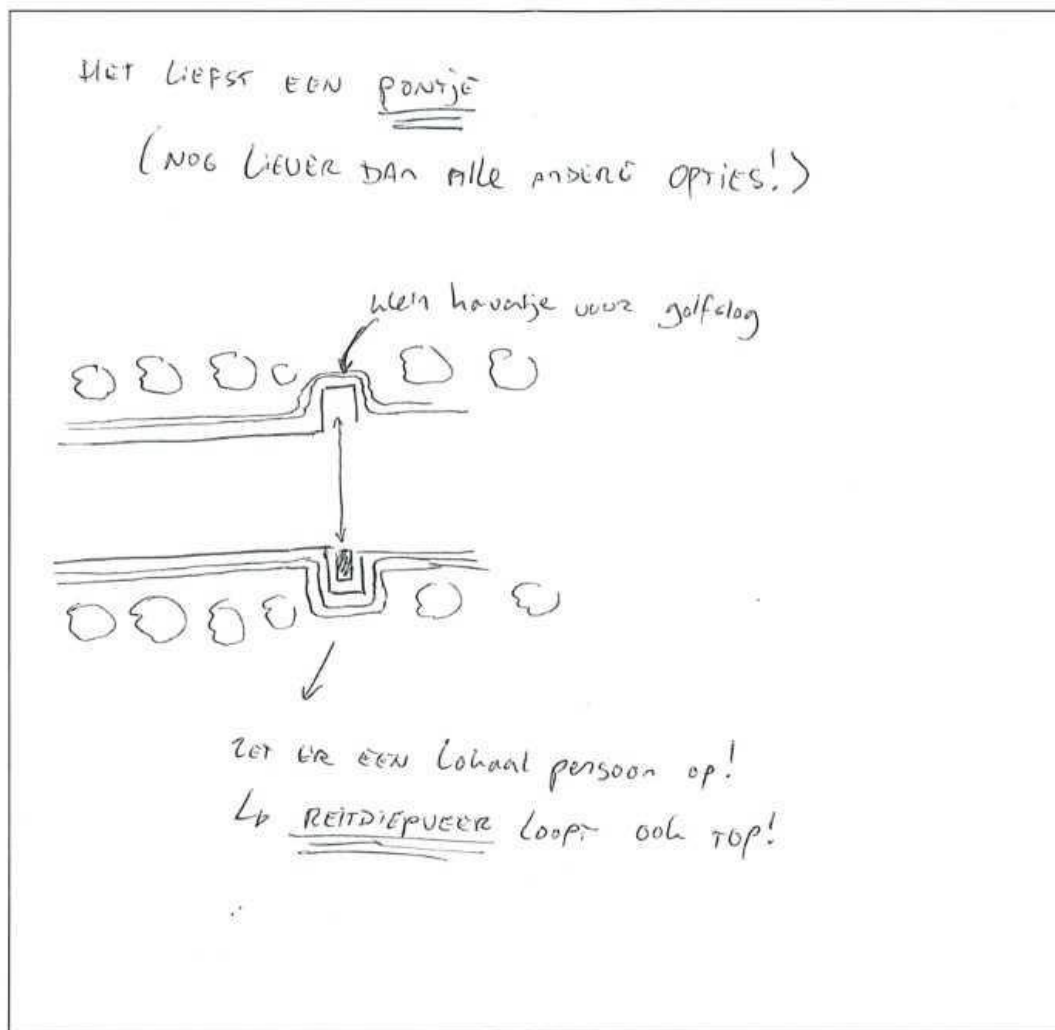 HET LIEFST EEN PONTJE
(NOG LIEVER DAN ALLE ANDERE OPTIES!)
klein haventje voor golfslag
ZET ER EEN LOKAAL persoon op!
↳ REITDIEPVEER LOOPT OOK TOP!